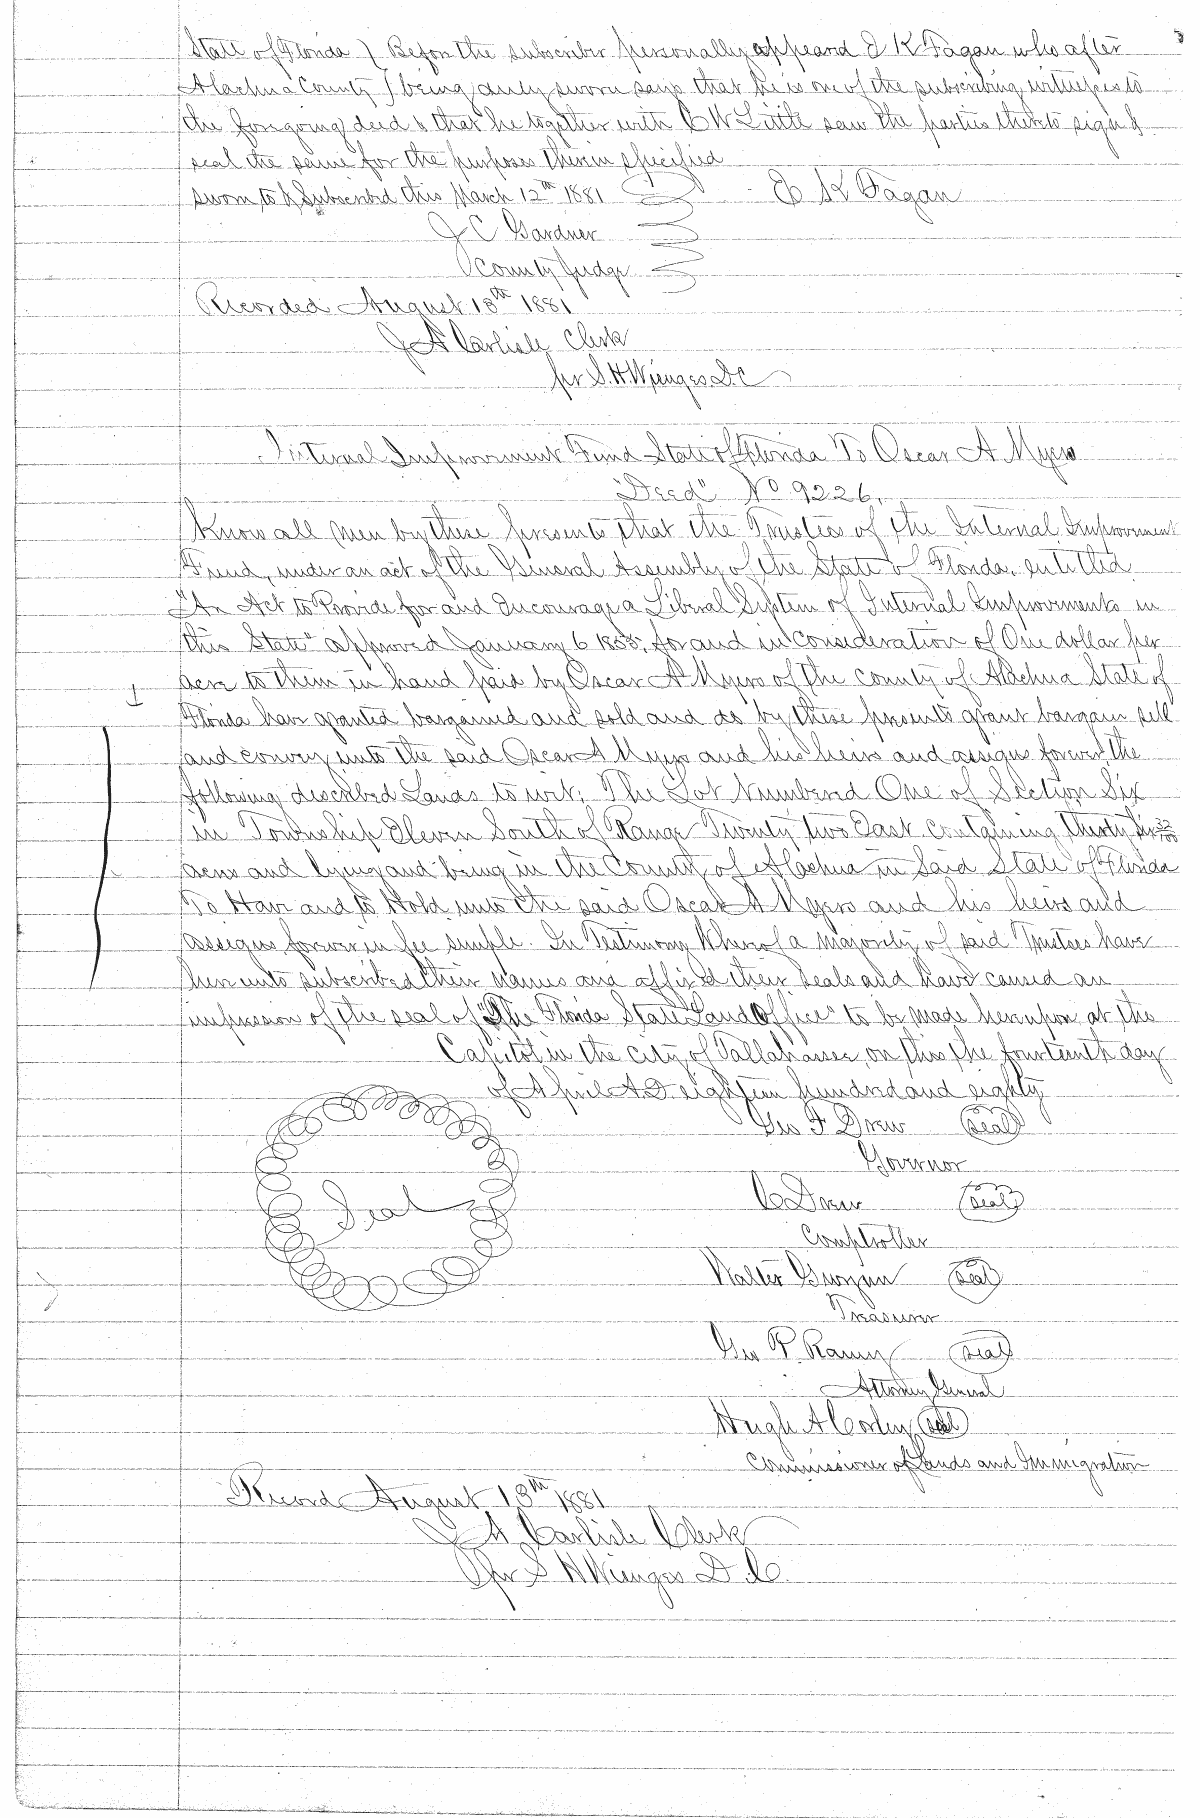 State of Florida } Before the subscriber personally appeared E K Fagan who after
Alachua County } being duly sworn says that he is one of the subscribing witnesses to
the foregoing deed & that he together with C W Little saw the parties thereto sign &
seal the same for the purposes therein specified
sworn to & Subscribed this March 12th 1881 E K Fagan
J C Gardner
County Judge
Recorded August 13th 1881
J A Carlisle Clerk
per S. H. Wienges D.C
Internal Improvement Fund State of Florida To Oscar A Myers
"Deed" No 9226.
Know all Men by these Presents, that the Trustees of the Internal Improvement
Fund, under an act of the General Assembly of the State of Florida, entitled
"An Act to Provide for and Encourage a Liberal System of Internal Improvements in
this State" approved January 6 1855, for and in consideration of One dollar per
acre to them in hand paid by Oscar A Myers of the County of Alachua State of
Florida have granted bargained and sold and do by these presents grant bargain sell
and convey unto the said Oscar A Myers and his heirs and assigns forever the
following described Lands to wit; The Lot Numbered One of Section Six
in Township Eleven South of Range Twenty two East containing thirty six 32/100
acres and lying and being in the County of Alachua in Said State of Florida
To Have and to Hold unto the said Oscar A Myers and his heirs and
assigns forever in fee simple. In Testimony Whereof a majority of said Trustees have
hereunto subscribed their names and affixed their seals and have caused an
impression of the seal of "The Florida State Land Office" to be made hereupon at the
Capitol in the city of Tallahassee, on this the fourteenth day
of April A D eighteen hundred and eighty
Geo F Drew Seal
Governor
Seal
C Drew Seal
Comptroller
Walter Gwynn Seal
Treasurer
Geo P. Raney Seal
Attorney General
Hugh A Corley Seal
Commissioner of Lands and Immigration
Record August 13th 1881
J A Carlisle Clerk
per S H Wienges D. C.